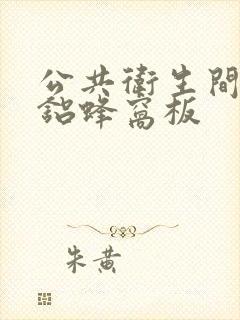 公共衛生間
鋁蜂窩板
朱黃